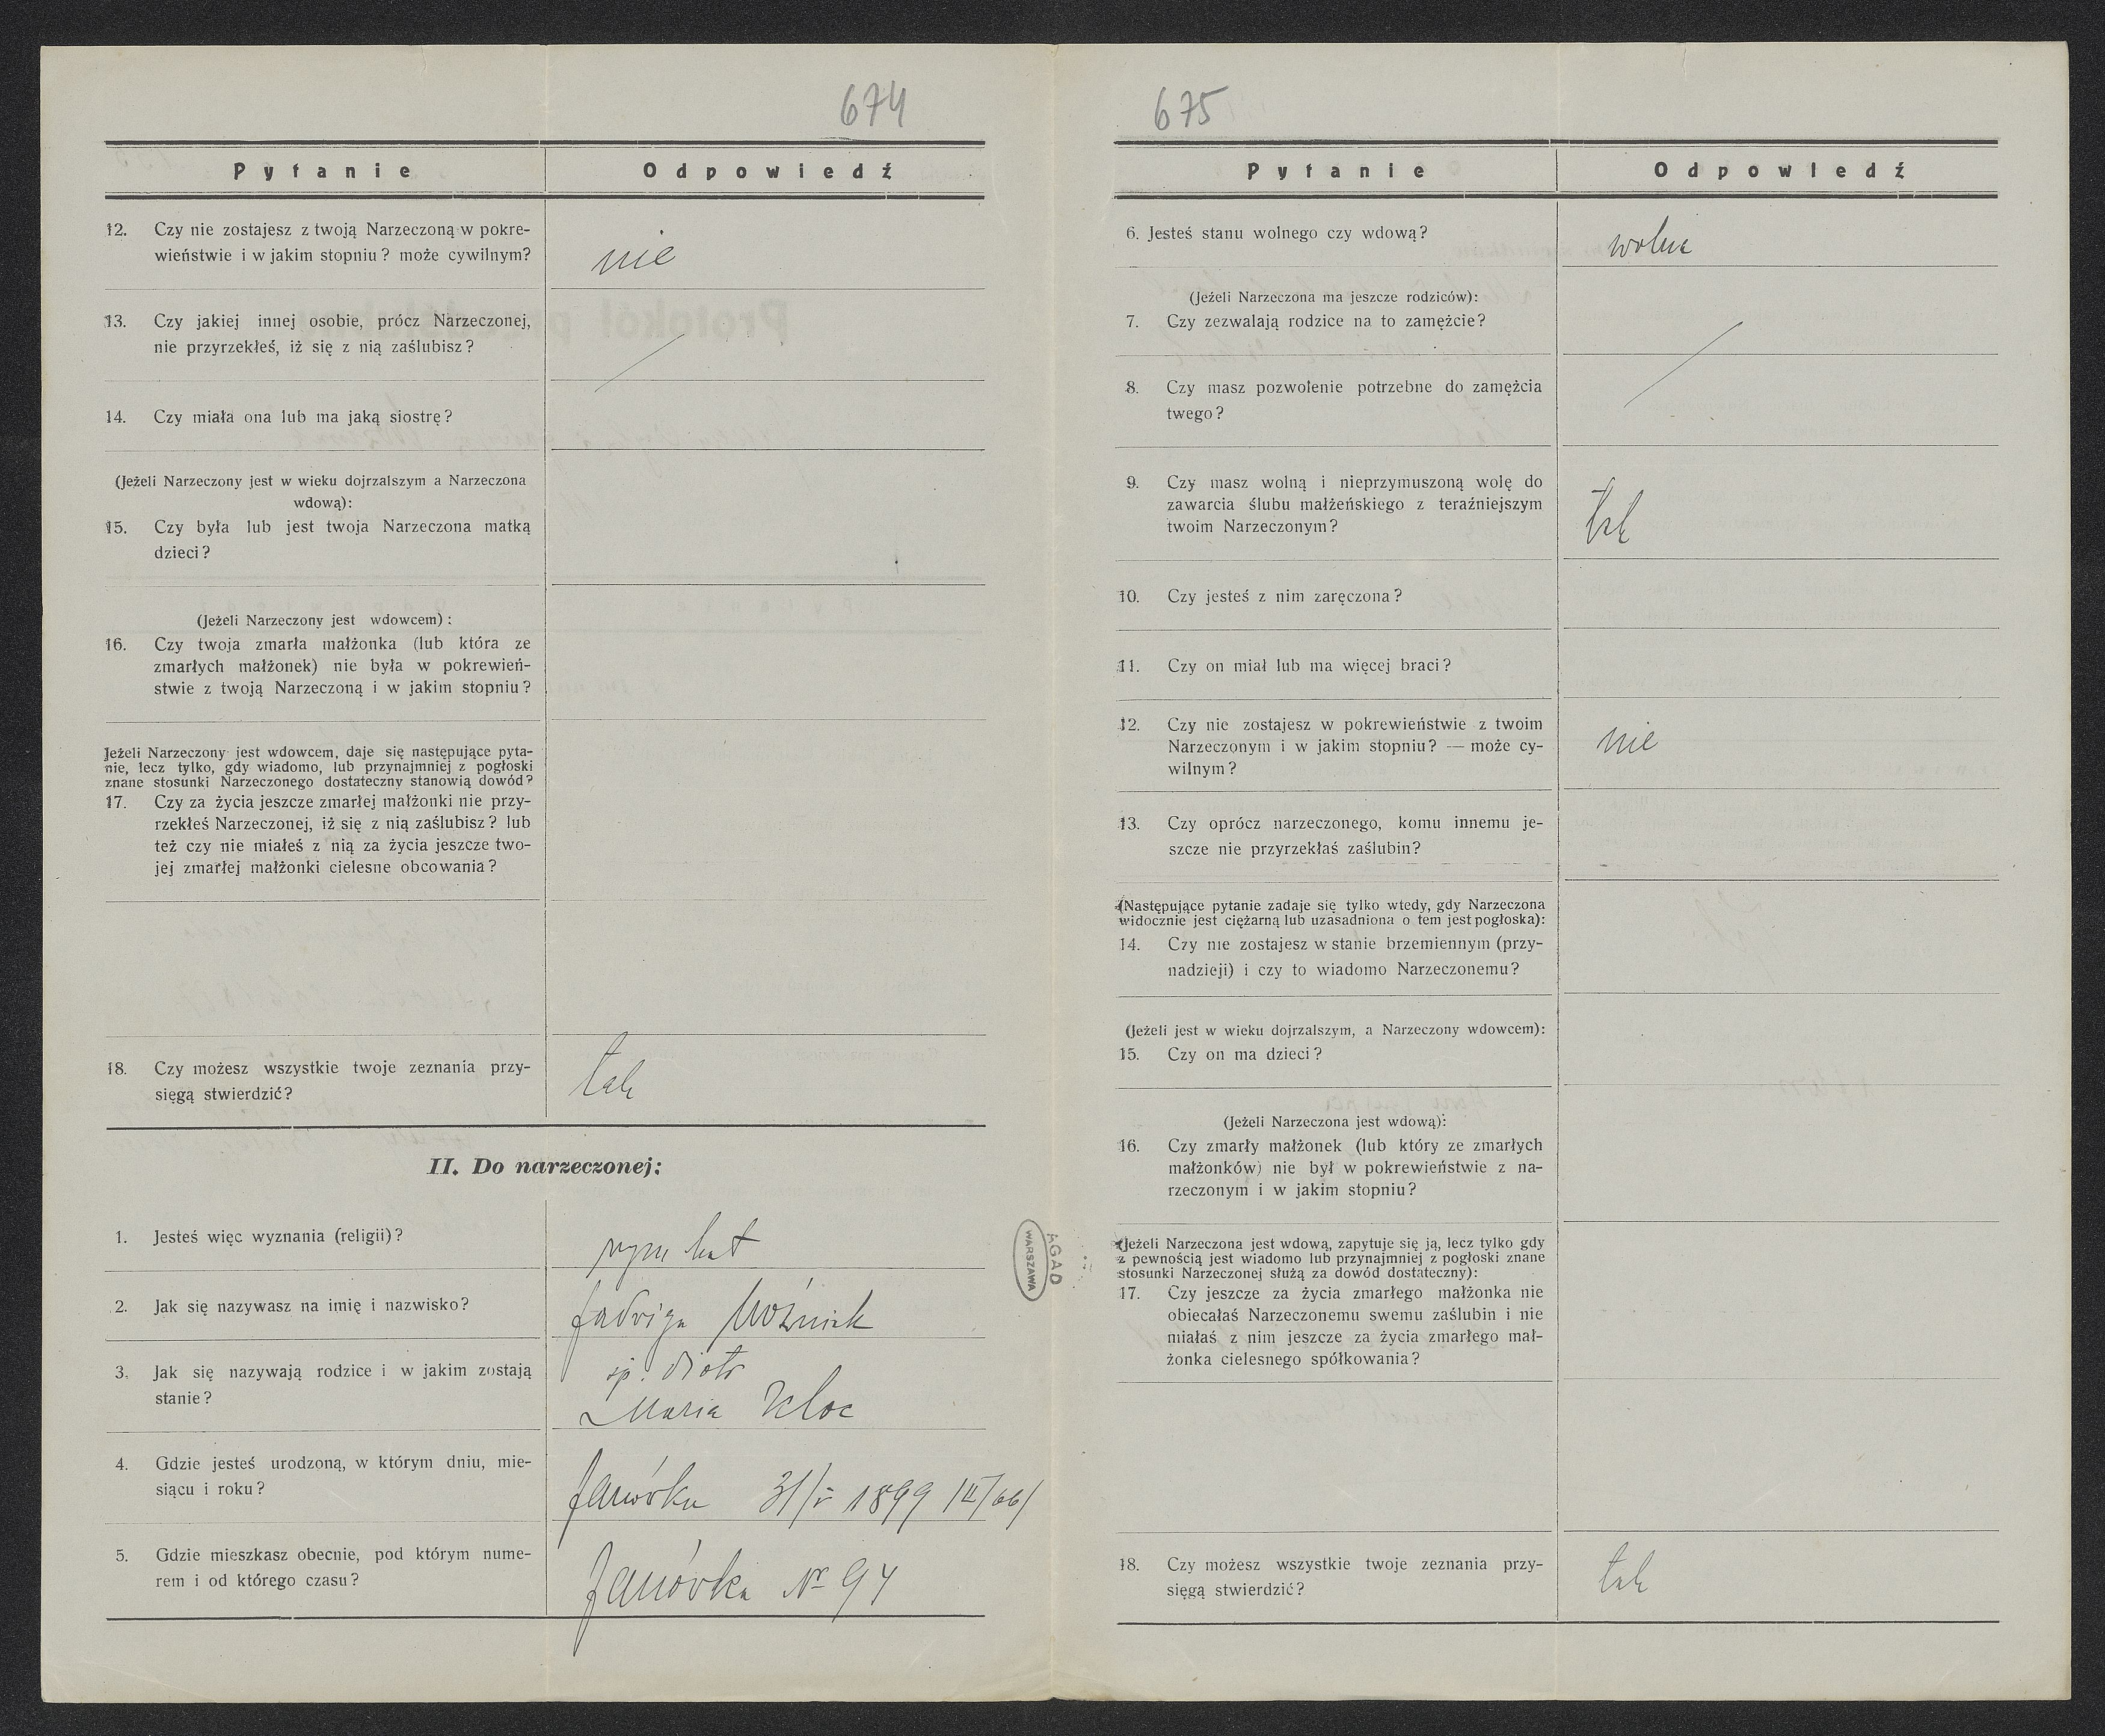 674
Pytanie Odpowiedź
12. Czy nie zostajesz z twoją Narzeczoną w pokre-
wieństwie i w jakim stopniu? może cywilnym?
nie
13. Czy jakiej innej osobie, prócz Narzeczonej,
nie przyrzekłeś, iż się z nią zaślubisz?
14. Czy miała ona lub ma jaką siostrę?
(Jeżeli Narzeczony jest w wieku dojrzalszym a Narzeczona
wdową):
15. Czy była lub jest twoja Narzeczona matką
dzieci?
(Jeżeli Narzeczony jest wdowcem):
16. Czy twoja zmarła małżonka (lub która ze
zmarłych małżonek) nie była w pokrewień-
stwie z twoją Narzeczoną i w jakim stopniu?
Jeżeli Narzeczony jest wdowcem, daje się następujące pyta-
nie, lecz tylko, gdy wiadomo, lub przynajmniej z pogłoski
znane stosunki Narzeczonego dostateczny stanowią dowód?
17. Czy za życia jeszcze zmarłej małżonki nie przy-
rzekłeś Narzeczonej, iż się z nią zaślubisz? lub
też czy nie miałeś z nią za życia jeszcze two-
jej zmarłej małżonki cielesne obcowania?
18. Czy możesz wszystkie twoje zeznania przy-
sięgą stwierdzić?
tak
II. Do narzeczonej:
1. Jesteś więc wyznania (religii)?
rzym kat
2. Jak się nazywasz na imię i nazwisko?
Jadwiga Woźniak
3. Jak się nazywają rodzice i w jakim zostają
stanie?
śp. Piotr
Maria Kloc
4. Gdzie jesteś urodzoną, w którym dniu, mie-
siącu i roku?
Janówka 31/V 1899
5. Gdzie mieszkasz obecnie, pod którym nume-
rem i od którego czasu?
Janówka Nr 94
AGAD
WARSZAWA
675
Pytanie Odpowiedź
6. Jesteś stanu wolnego czy wdową?
wolna
(Jeżeli Narzeczona ma jeszcze rodziców):
7. Czy zezwalają rodzice na to zamężcie?
8. Czy masz pozwolenie potrzebne do zamężcia
twego?
9. Czy masz wolną i nieprzymuszoną wolę do
zawarcia ślubu małżeńskiego z teraźniejszym
twoim Narzeczonym?
tak
10. Czy jesteś z nim zaręczona?
11. Czy on miał lub ma więcej braci?
12. Czy nie zostajesz w pokrewieństwie z twoim
Narzeczonym i w jakim stopniu? — może cy-
wilnym?
nie
13. Czy oprócz narzeczonego, komu innemu je-
szcze nie przyrzekłaś zaślubin?
(Następujące pytanie zadaje się tylko wtedy, gdy Narzeczona
widocznie jest ciężarną lub uzasadniona o tem jest pogłoska):
14. Czy nie zostajesz w stanie brzemiennym (przy-
nadzieji) i czy to wiadomo Narzeczonemu?
(Jeżeli jest w wieku dojrzalszym, a Narzeczony wdowcem):
15. Czy on ma dzieci?
(Jeżeli Narzeczona jest wdową):
16. Czy zmarły małżonek (lub który ze zmarłych
małżonków) nie był w pokrewieństwie z na-
rzeczonym i w jakim stopniu?
(Jeżeli Narzeczona jest wdową, zapytuje się ją, lecz tylko gdy
z pewnością jest wiadomo lub przynajmniej z pogłoski znane
stosunki Narzeczonej służą za dowód dostateczny):
17. Czy jeszcze za życia zmarłego małżonka nie
obiecałaś Narzeczonemu swemu zaślubin i nie
miałaś z nim jeszcze za życia zmarłego mał-
żonka cielesnego spółkowania?
18. Czy możesz wszystkie twoje zeznania przy-
sięgą stwierdzić?
tak